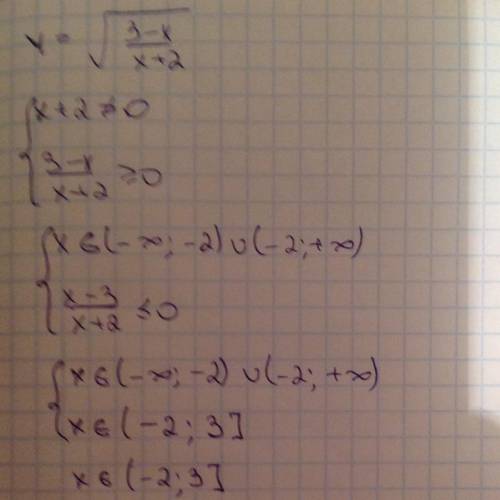 y = √((3-x)/(x+2))
{ x+2 ≠ 0
(3-x)/(x+2) ≥ 0
{ x ∈ (-∞; -2) ∪ (-2; +∞)
(x-3)/(x+2) ≤ 0
{ x ∈ (-∞; -2) ∪ (-2; +∞)
x ∈ (-2; 3]
x ∈ (-2; 3]